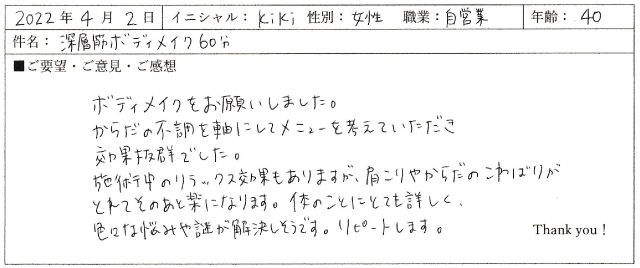 2022年4月2日 イニシャル：kiki 性別：女性 職業：自営業 年齢：40
件名：深層筋ボディメイク60分
■ご要望・ご意見・ご感想
ボディメイクをお願いしました。
からだの不調を軸にしてメニューを考えていただき
効果抜群でした。
施術中のリラックス効果もありますが、肩こりやからだのこわばりが
とれてそのあと楽になります。体のことにとても詳しく、
色々な悩みや謎が解決しそうです。リピートします。
Thank you！